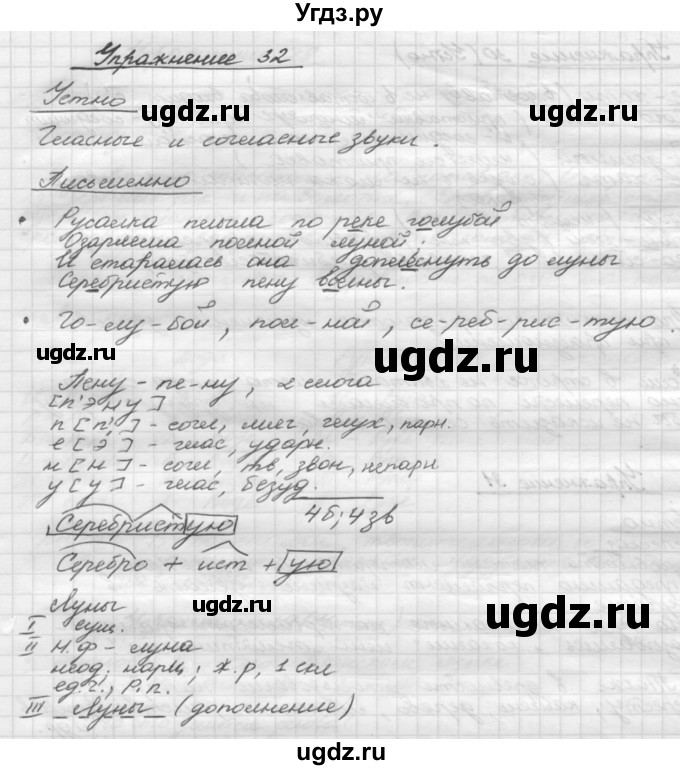 Угдз.ру
Упражнение 32
Устно
Гласные и согласные звуки.
Письменно
• Русалка плыла по реке голубой
Озаряема полной луной;
И старалась она доплеснуть до луны
Серебристую пену волны.
• Го-лу-бой, пол-ной, се-реб-рис-тую.
Пену - пе-ну, 2 слога
[п'эну]
п [п'] - согл, мягк, глух, парн.
е [э] - глас, ударн.
н [н] - согл, тв, звон, непарн
у [у] - глас, безуд.
4б; 4зв
Серебристую
Серебро + ист + ую
Луны
I сущ.
II Н.ф - луна
неод, нариц, ж.р, 1 скл
ед.ч., Р.п.
III Луны (дополнение)
ugdz.ru
ugdz.ru
ugdz.ru
ugdz.ru
ugdz.ru
ugdz.ru
ugdz.ru
ugdz.ru
ugdz.ru
ugdz.ru